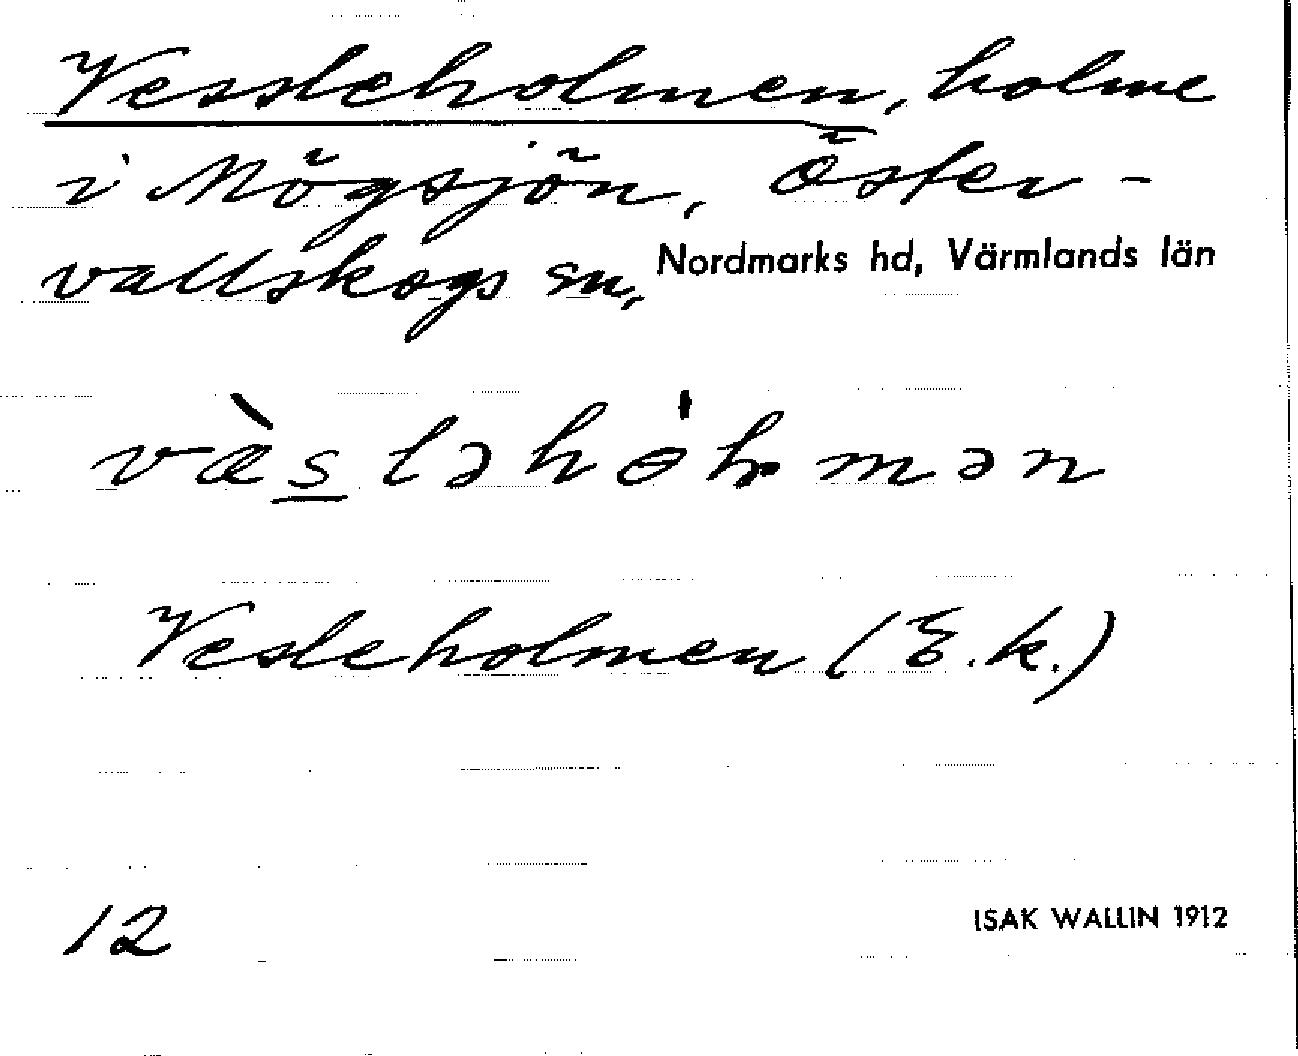 Vessleholmen, holme
i Mögsjön, Öster-
vallskogs sn, Nordmarks hd, Värmlands län
Vesleholmen (E.k.)
12
ISAK WALLIN 1912